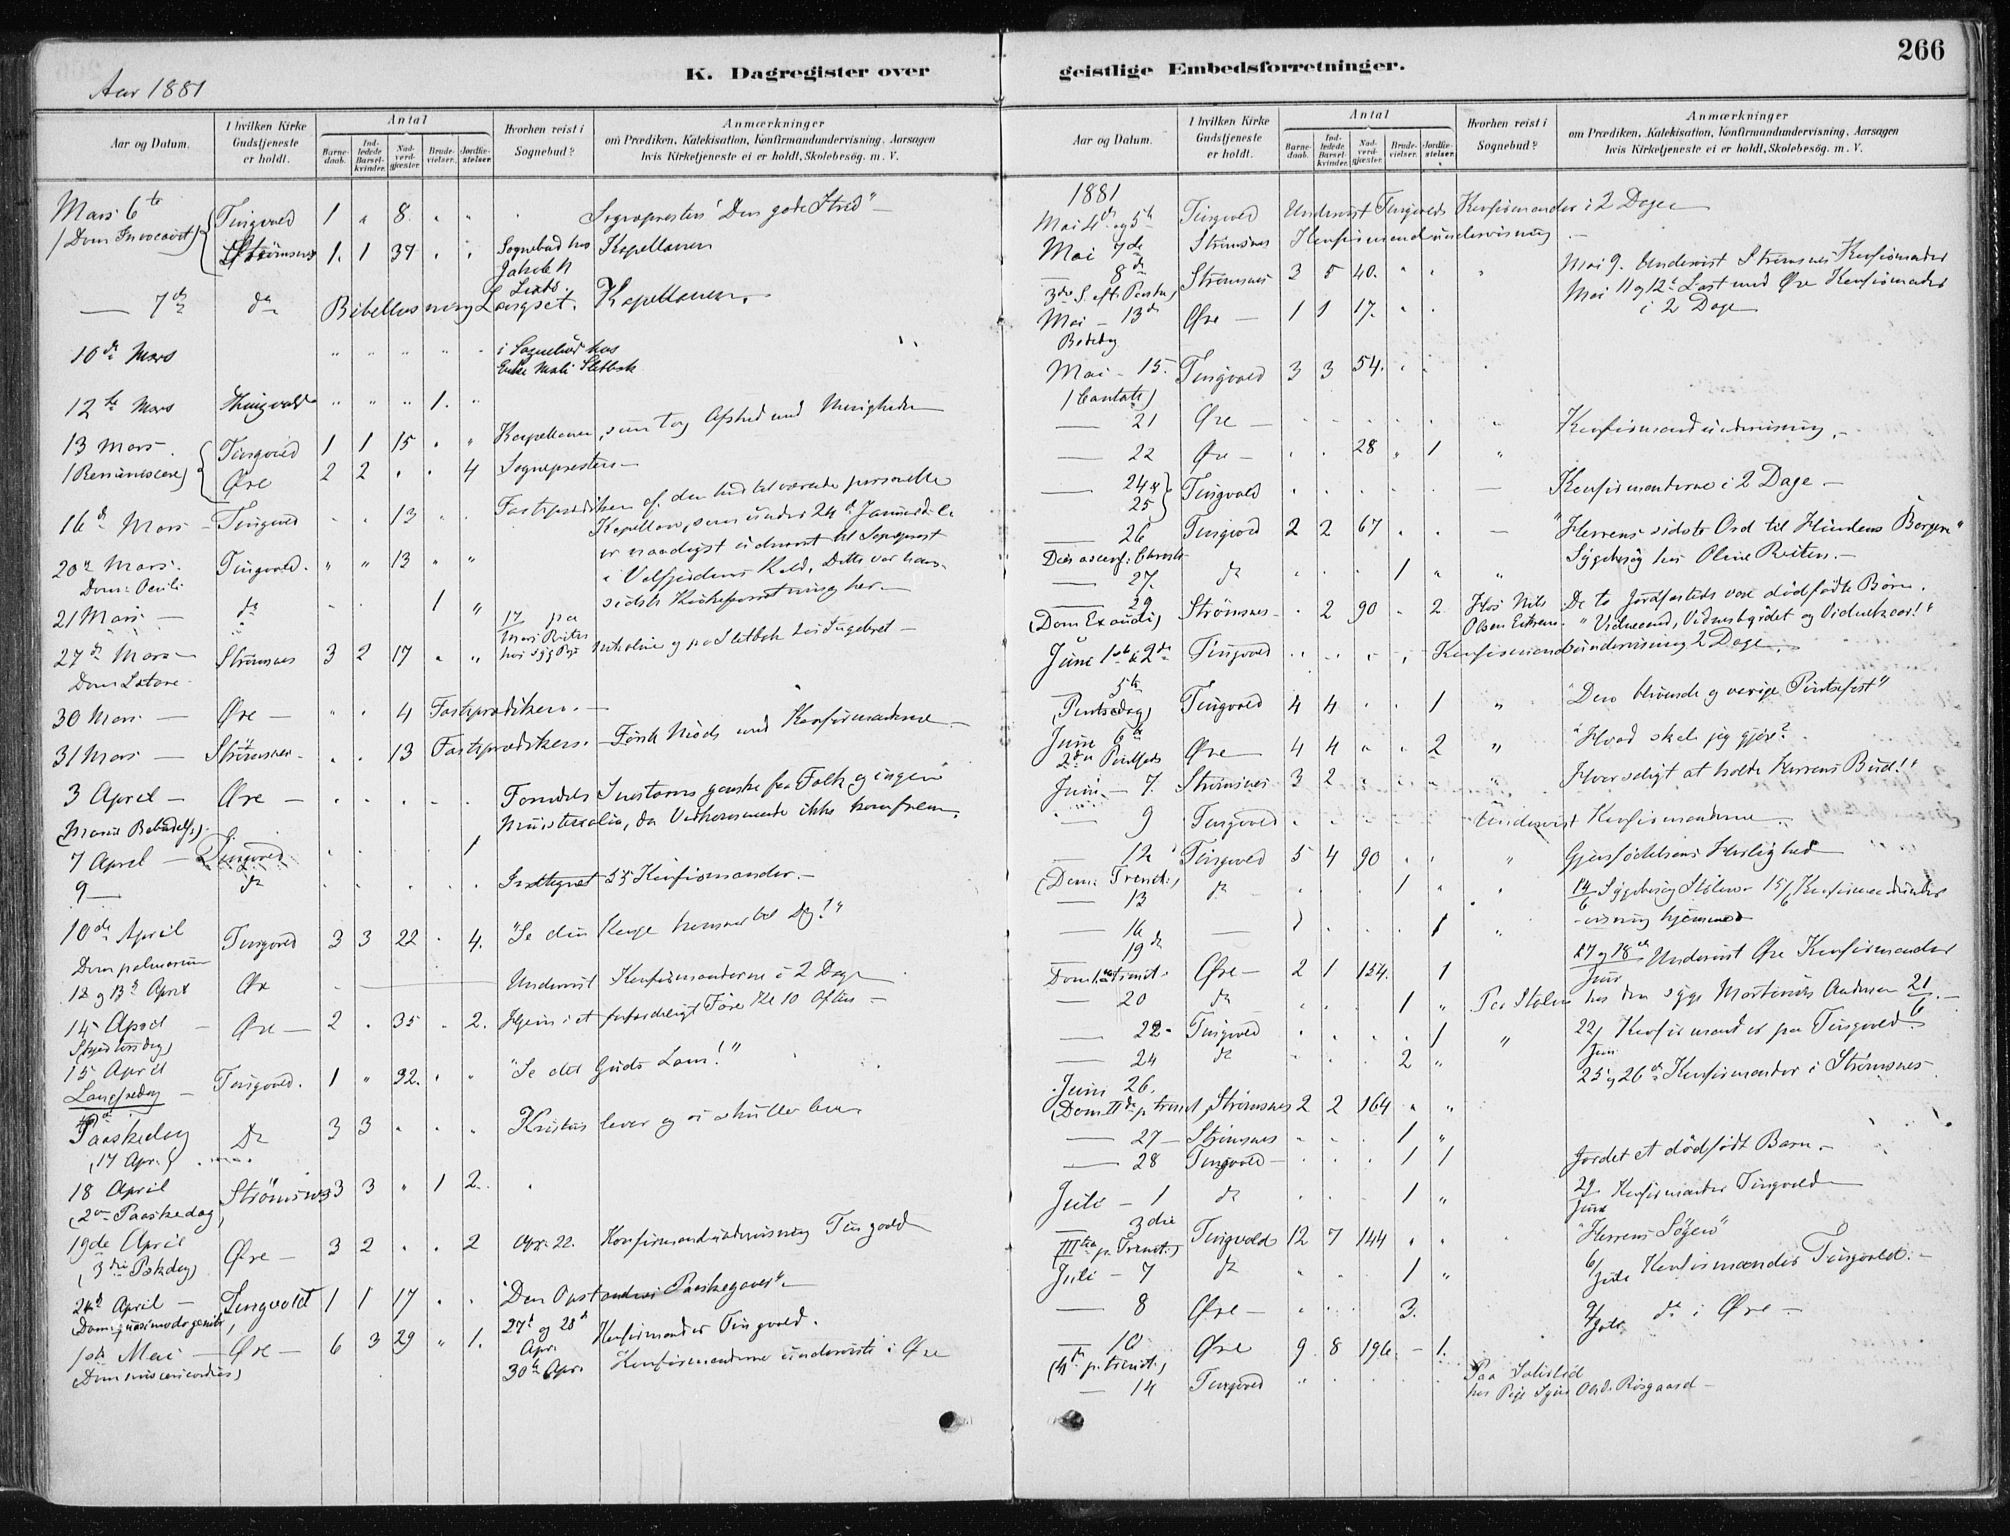 266
K. Dagregister over
geistlige Embedsforretninger.
Aar 1881
Aar og Datum.
I hvilken Kirke Gudstjeneste er holdt.
Antal
Barnedaab.
Indledede Barselkvinder.
Nadverdgjæster.
Brudevielser.
Jordfæstelser.
Hvorhen reist i Sognebud?
Anmærkninger
om Prædiken, Katekisation, Konfirmandundervisning, Aarsagen
hvis Kirketjeneste ei er holdt, Skolebesög. m. V.
Mars 6te Tingvold 1 " 8 " " Sognepresten "Den gode Strid"
(Dom Invocavit) Strömsnes 1. 1 37 " " Sognebud hos Kapellanen
Jakob
7de do Bibellæsning Kapellanen.
10de Mars " " " " " i Sognebud hos
Enke
12te Mars Thingvold " " " 1. "
13 Mars Tingvold 1 1 15 " " Kapellanen, som tog Afsked med Menigheden
(Reminiscere) Øre 2 2 " " 4 Sognepresten
16de Mars Tingvold " " 13 " " Fasteprædiken af den hidtilværende personelle
Kapellan, som under 24de
er naadigst udnævnt til Sogneprest
20de Mars. Tingvold. " " 13 " "
i Velfjordens Kald, Dette var hans
Dom: Oculi
sidste Kirkeforretning her.
21 Mars do " " " 1 "
27de Mars Strömsnes 3 2 17 " "
Dom Lætare
30 Mars Øre " " 4 Fasteprædiken.
31 Mars Strömsnes " " 13 Fasteprædiken. Første Möde med Konfirmanderne
3 April Øre " " " " " ganske faa Folk og ingen
(Mariæ Bebudelse) Ministerialia, da Vedkommende ikke kom frem.
7 April Tingvold " " " " 1
9 do " " " " " Indtegnet 35 Konfirmander.
10de April Tingvold 3 3 22 " 4. "Se din Konge kommer til Dig!"
Dom palmarum
12 og 13de April Øre Underviist Konfirmanderne i 2 Dage
14 April Øre 2 " 35 " 2. Hjem i et forfærdeligt Före Kl 10 Aften
(Skjærtorsdag)
15 April
Langfredag Tingvold. 1 " 32. " " "Se det Guds Lam!"
Paaskedag Do 3 3 " " " Kristus lever og vi skulle leve
(17 Apr.)
18 April Strömsnes 3 3 " 1 2.
(2den Paaskedag)
19de April Øre 3 2 " " 2 Apr. 22. Konfirmandundervisning Tingvold
(3die Paskdag)
24de April Tingvold 1 1 17 " " "Den Opstandnes Paaskegaver"
Dom: quasimodogeniti 27de og 28de Apr. Konfirmander Tingvold.
1ste Mai Øre 6 3 29 " 1. 30te Apr. Konfirmanderne underviste i Øre
(Dom misericordias)
Aar og Datum.
I hvilken Kirke Gudstjeneste er holdt.
Antal
Barnedaab.
Indledede Barselkvinder.
Nadverdgjæster.
Brudevielser.
Jordfæstelser.
Hvorhen reist i Sognebud?
Anmærkninger
om Prædiken, Katekisation, Konfirmandundervisning, Aarsagen
hvis Kirketjeneste ei er holdt, Skolebesög. m. V.
1881
Mai 4de og 5te Tingvold Underviist Tingvolds Konfirmander i 2 Dage
Mai 7de Strömsnes Konfirmandundervisning
8de Strömsnes 3 5 40. " " " Mai 9. Underviist Strömsnes Konfirmander
3die S. eft. Paaske) Mai 11 og 12te Læst med Øre Konfirmander
Mai 13de Øre 1 1 17. " " i 2 Dage
Bededag
Mai 15. Tingvold 3 3 54. " "
(Cantate)
21 Øre " " " " " " Konfirmandundervisning
22 Øre " " 28 " 1 "
24 & 25 Tingvold " " " " " Konfirmanderne i 2 Dage
26 Tingvold 2 2 67 " " "Herrens sidste Ord til Himlens Borgere"
Dies ascens. Christi Sygebesög hos Oline Reiten.
27. do " " " 1 " "
29 Strömsnes " 2 90 " 2 Hos Nils De to Jordfæstede vare dödfödte Börn.
(Dom Exaudi) Olsen "Vidnesbyrdet og Vidnekaar!"
Juni 1ste & 2den Tingvold " " " " Konfirmandundervisning 2 Dage
5te Tingvold 4 4 " " 1 " "Den blivende og varige Pintsefest"
(Pintsedag)
Juni 6te Øre 4 4 " " 2 " "Hvad skal jeg gjøre?
2den Pintsed.
Juni 7. Strömsnes 3 2 " " " " Hvor saligt at holde Herrens Bud!"
9 Tingvold " " " " " Underviist Konfirmanderne
12 Tingvold 5 4 90 " " " Gjenfödelsens Herlighed
(Dom: Trenit:)
13 do " " " 1 " " 14/6 Sygebesög Stölen 15/6 Konfirmandunder
-visning hjemme
16 " " " " 1 "
19de Øre 2 1 154. " 1 17 og 18de Juni Underviist Øre Konfirmander
Dom. 1. p. trinit.
20 do " " " 1 " Paa Stölen hos den syge Andersen 21/6
22 Tingvold " " " " 1 " 22/Juni Konfirmander paa Tingvold
24 do " " " 2 " 25 og 26de Konfirmander i Strömsnes
Juni 26. Strömsnes 2 2 164 " "
(Dom IIden p. trenit
27 Strömsnes " " " 1 "
28 Tingvold " " " 1 1 Jordet et dödfödt Barn
Juli 1 do " " " 1 " 29/Juni Konfirmander Tingvold
3die Tingvold 12 7 144 " " "Herrens Søgen"
IIItia p. Trenit:)
Juli 7 do " " " 1 " 6/Juli Konfirmander Tingvold.
8 Øre " " " 3. 9/Juli do i Øre
10 Øre 9 8 196 " 1.
(4de p. trenit.)
14 Tingvold " " " " " Paa
hos Pige